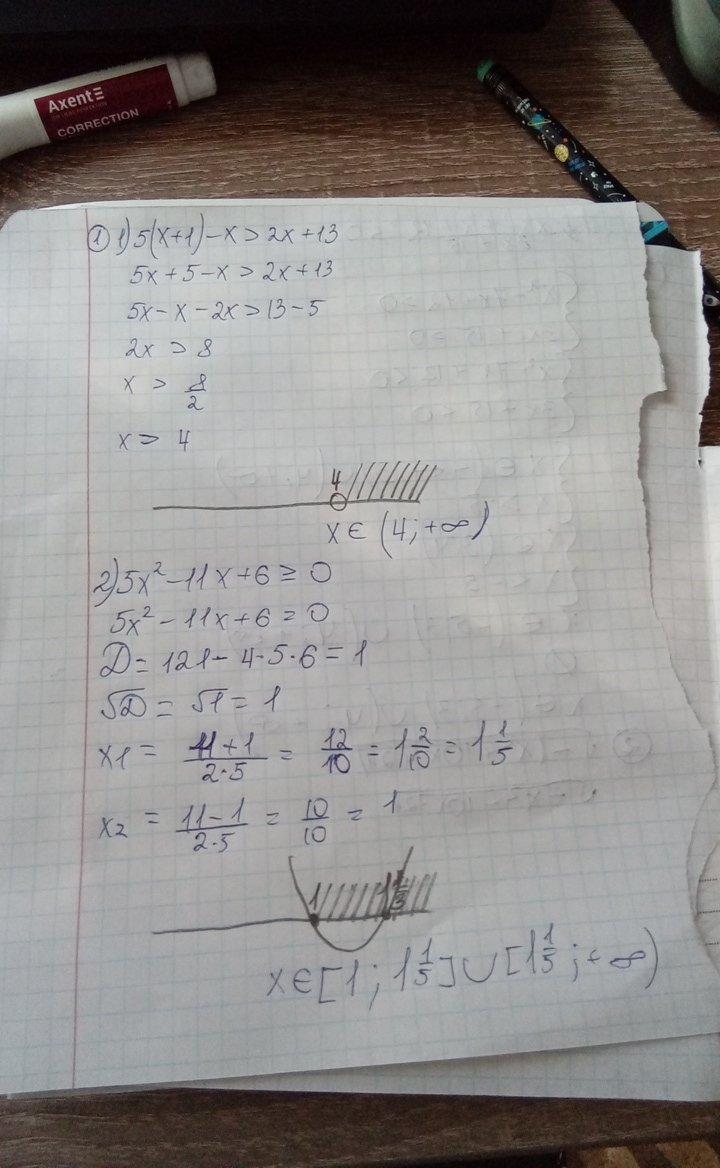 Axent
CORRECTION
① 1) 5(x+1)-x>2x+13
5x+5-x>2x+13
5x-x-2x>13-5
2x>8
x > 8/2
x > 4
4
x∈(4;+∞)
2) 5x²-11x+6≥0
5x²-11x+6=0
D=121-4·5·6=1
√D=√1=1
x1 = 11+1/2·5 = 12/10 = 1 2/10 = 1 1/5
x2 = 11-1/2·5 = 10/10 = 1
1
x∈[1; 1 1/5]∪[1 1/5;+∞)